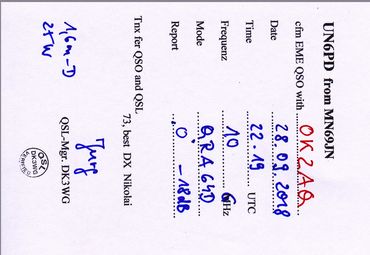 UN6PD from MN69JN
cfm EME QSO with OK2AQ
Date 28.09.2018
Time 22.19 UTC
Frequenz 10 GHz
Mode QRA64D
Report O -18dB
Tnx for QSO and QSL
73, best DX Nikolai
1,6m-D
25W
QSL-Mgr. DK3WG
QSL
DK3WG